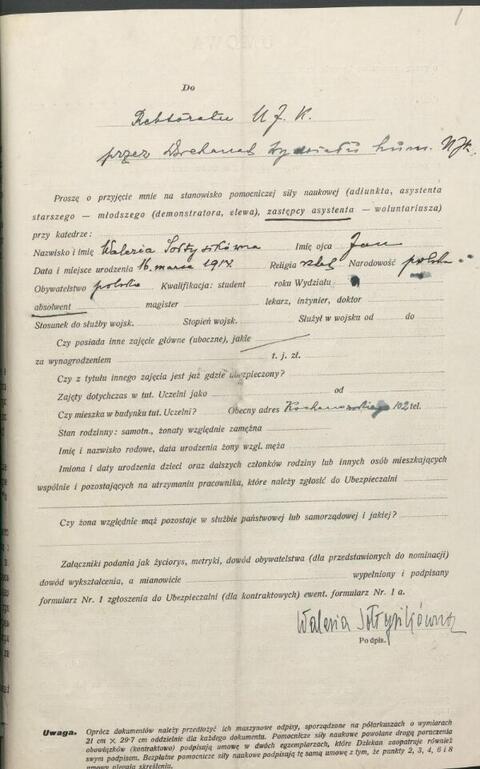 1
Do
Rektoratu U. J. K.
przez Dziekanat Wydziału hum. UJK.
Proszę o przyjęcie mnie na stanowisko pomocniczej siły naukowej (adiunkta, asystenta
starszego — młodszego (demonstratora, elewa), zastępcy asystenta — woluntariusza)
przy katedrze:
Nazwisko i imię Waleria Sołtysikówna Imię ojca Jan
Data i miejsce urodzenia 16 marca 191 Religia rzkat. Narodowość polska
Obywatelstwo polskie Kwalifikacja: student roku Wydziału
absolwent magister lekarz, inżynier, doktor
Stosunek do służby wojsk. Stopień wojsk. Służył w wojsku od do
Czy posiada inne zajęcie główne (uboczne), jakie
za wynagrodzeniem t. j. zł.
Czy z tytułu innego zajęcia jest już gdzie ubezpieczony?
Zajęty dotychczas w tut. Uczelni jako od
Czy mieszka w budynku tut. Uczelni? Obecny adres Kochanowskiego 102 tel.
Stan rodzinny: samotn., żonaty względnie zamężna
Imię i nazwisko rodowe, data urodzenia żony wzgl. męża
Imiona i daty urodzenia dzieci oraz dalszych członków rodziny lub innych osób mieszkających
wspólnie i pozostających na utrzymaniu pracownika, które należy zgłosić do Ubezpieczalni
Czy żona względnie mąż pozostaje w służbie państwowej lub samorządowej i jakiej?
Załączniki podania jak życiorys, metryki, dowód obywatelstwa (dla przedstawionych do nominacji)
dowód wykształcenia, a mianowicie wypełniony i podpisany
formularz Nr. 1 zgłoszenia do Ubezpieczalni (dla kontraktowych) ewent. formularz Nr. 1 a.
Waleria Sołtysikówna
Podpis.
Uwaga. Oprócz dokumentów należy przedłożyć ich maszynowe odpisy, sporządzone na półarkuszach o wymiarach
21 cm × 29·7 cm oddzielnie dla każdego dokumentu. Pomocnicze siły naukowe powołane drogą poruczenia
obowiązków (kontraktowo) podpisują umowę w dwóch egzemplarzach, które Dziekan zaopatruje również
swym podpisem. Bezpłatne pomocnicze siły naukowe podpisują tą samą umowę z tym, że punkty 2, 3, 4, 6 i 8
umowy ulegają skreśleniu.